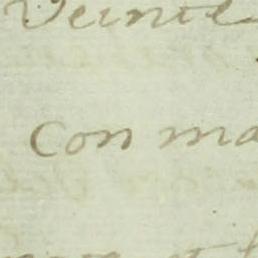 Veinte
Con ma